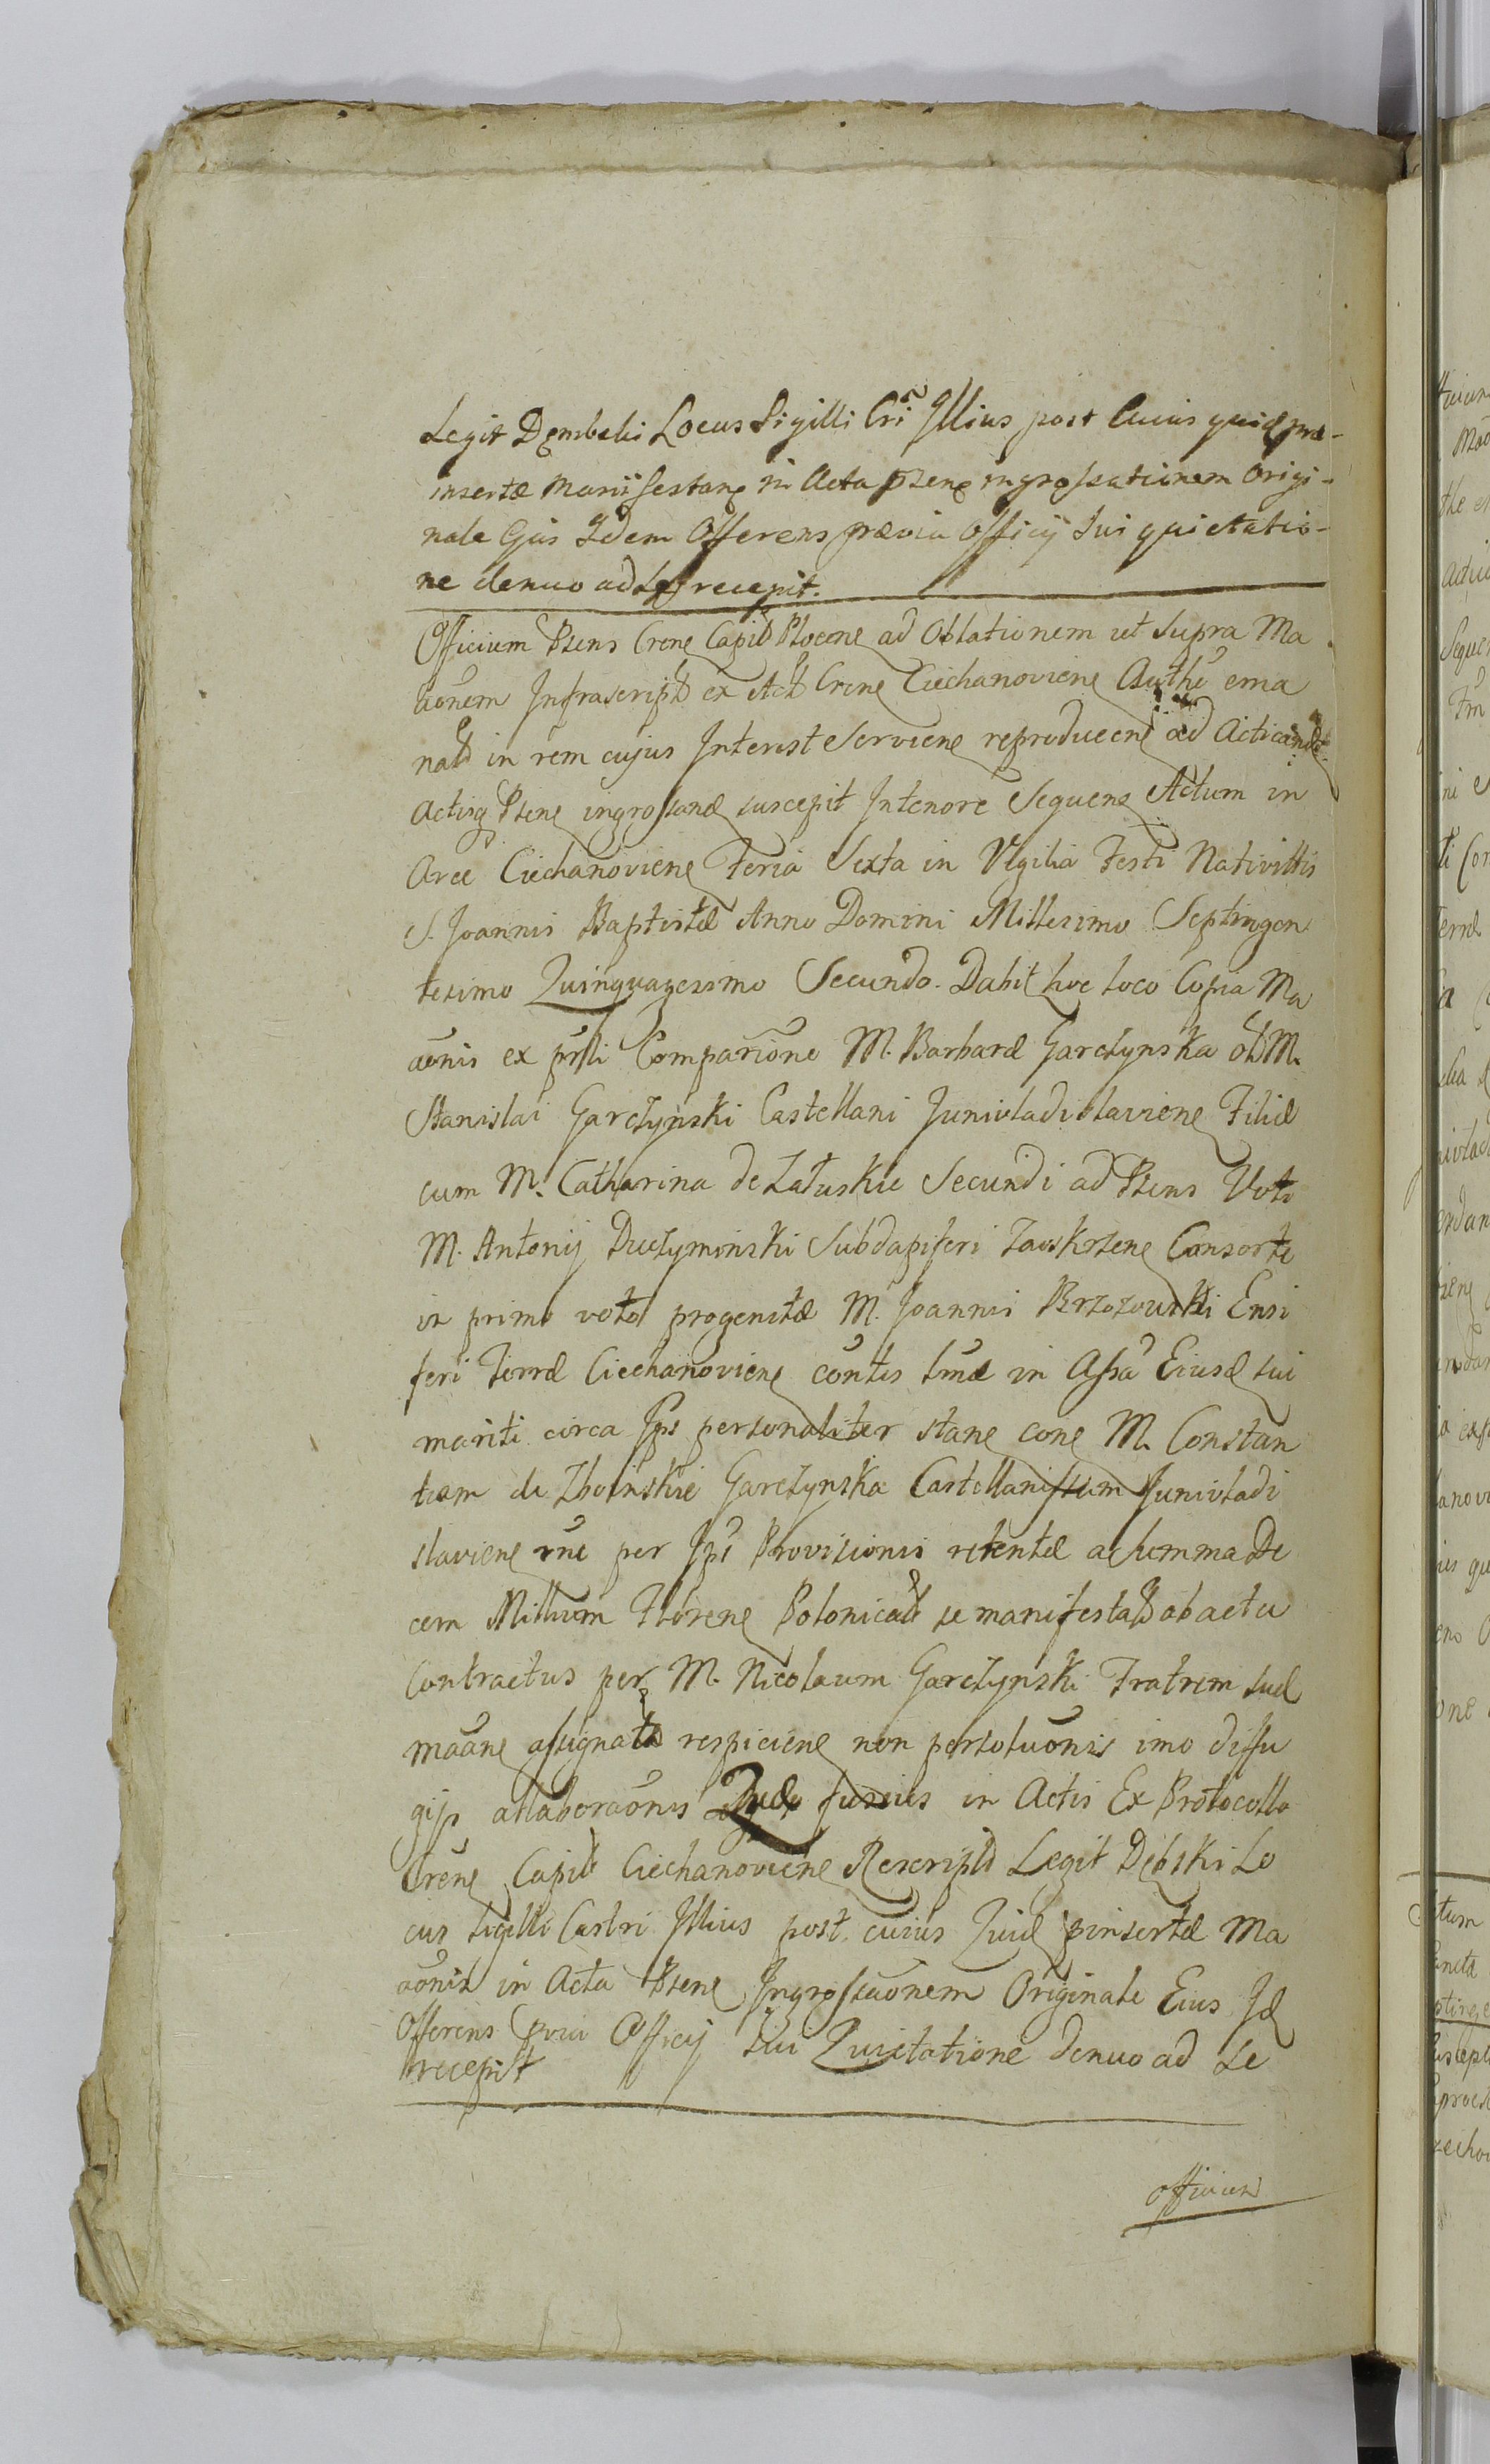 Legit Dembski Locus Sigilli Cri Illius post Cuius quid præ-
insertæ Manifestane in Acta Psene ingrossationem Origi-
nale Ejus Idem Offerens prævia Officij Sui quietatio-
ne denuo ad Se recepit.
Officium Psens Crene Capit Plocene ad Oblationem ut Supra Ma
aonem Infrascript ex Act Crene Ciechanoviene Authe ema
nat in rem cujus Interest Serviene reproducene ad Acticand
Actisq Psene ingrossand suscepit Intenore Sequene Actum in
Arce Ciechanoviene Feria Sexta in Vigilia Festi Nativittis
S. Joannis Baptistæ Anno Domini Millesimo Septingen
tesimo Quinquagesimo Secundo. Dabit hoc loco Copia Ma
aonis ex prsti Comparione M. Barbaræ Garczynska olt M.
Stanislai Garczynski Castellani Junivladislaviene Filiæ
cum M. Catharina de Załuskie Secundi ad Psens Voti
M. Antonij Duczyminski Subdapiferi Zawkrzene Consorte
in primo voto progenitæ M. Joannis Brzozowski Ensi
feri Terræ Ciechanoviene contis tmæ in Assa Eiusd sui
mariti circa Ips personaliter stane cone M. Constan
tiam de Zboinskie Garczynska Castellanissam Junivladi
slaviene rne per Ips Provisionis retentæ a Summa De
cem Millium Florene Polonicalt se manifestat ob actu
Contractus per M. Nicolaum Garczynski Fratrem suæ
maane assignato respiciene non persoluonis imo diffu
gijs allaboraonis Quæ fusius in Actis Ex Protocollo
Crene Capit Ciechanoviene Rescript Legit Dębski Lo
cus Sigilli Castri Illius post cuius Quid pinsertæ Ma
aonis in Acta Psene Ingrossaonem Originale Eius Id
Offerens Officij Sui Quietatione denuo ad Se
recepit
Officium